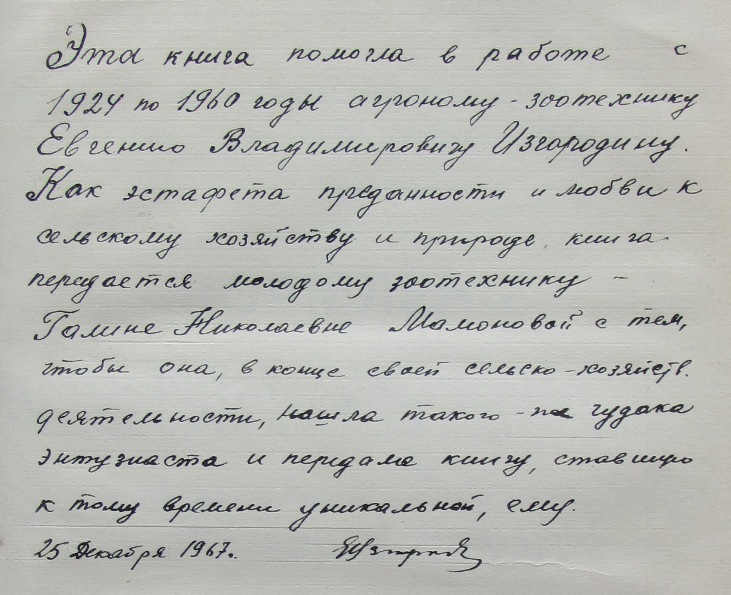 Эта книга помогла в работе с
1924 по 1960 годы агроному-зоотехнику
Евгению Владимировичу Изгородину.
Как эстафета преданности и любви к
сельскому хозяйству и природе, книга
передается молодому зоотехнику –
Галине Николаевне Мамоновой с тем,
чтобы она, в конце своей сельско-хозяйств.
деятельности, нашла такого-же чудака
энтузиаста и передала книгу, ставшую
к тому времени уникальной, ему.
25 Декабря 1967г.